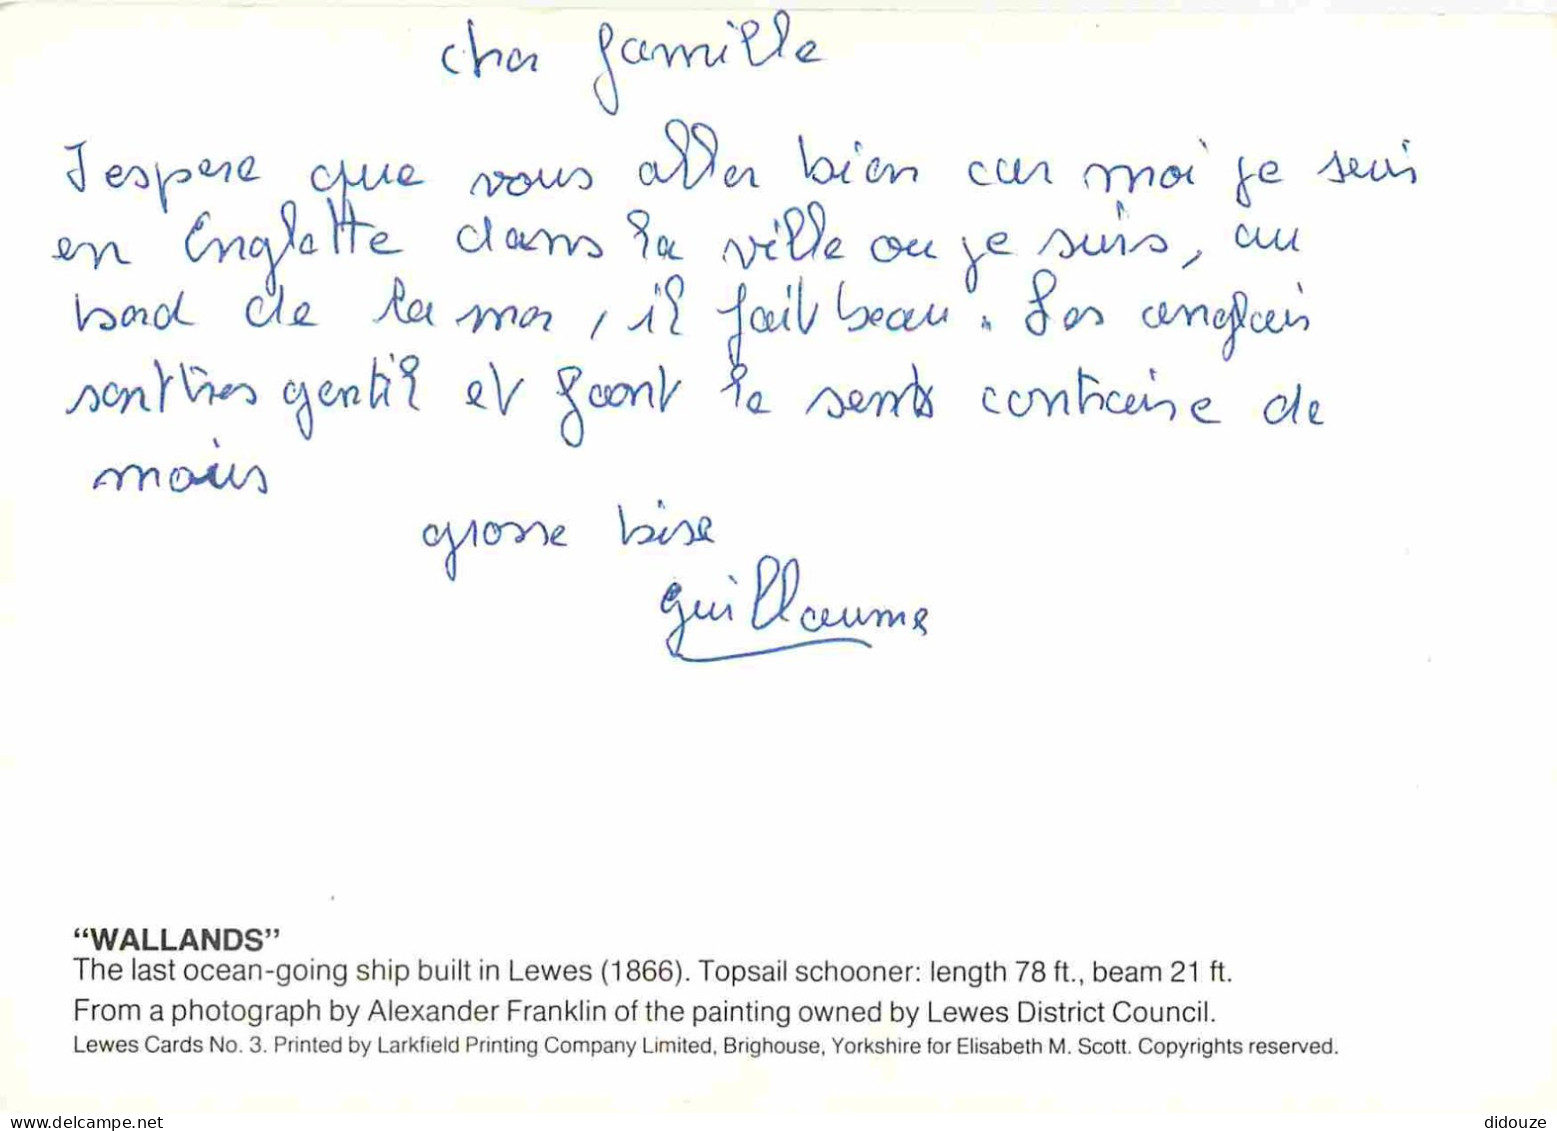 cher famille
J'espere que vous aller bien car moi je suis
en Englette dans la ville ou je suis, au
bord de la mer, il fait beau. Les anglais
sont tres gentil et font le sents contraire de
nous
grosse bise
guillaume
“WALLANDS”
The last ocean-going ship built in Lewes (1866). Topsail schooner: length 78 ft., beam 21 ft.
From a photograph by Alexander Franklin of the painting owned by Lewes District Council.
Lewes Cards No. 3. Printed by Larkfield Printing Company Limited, Brighouse, Yorkshire for Elisabeth M. Scott. Copyrights reserved.
delcampe.net
didouze